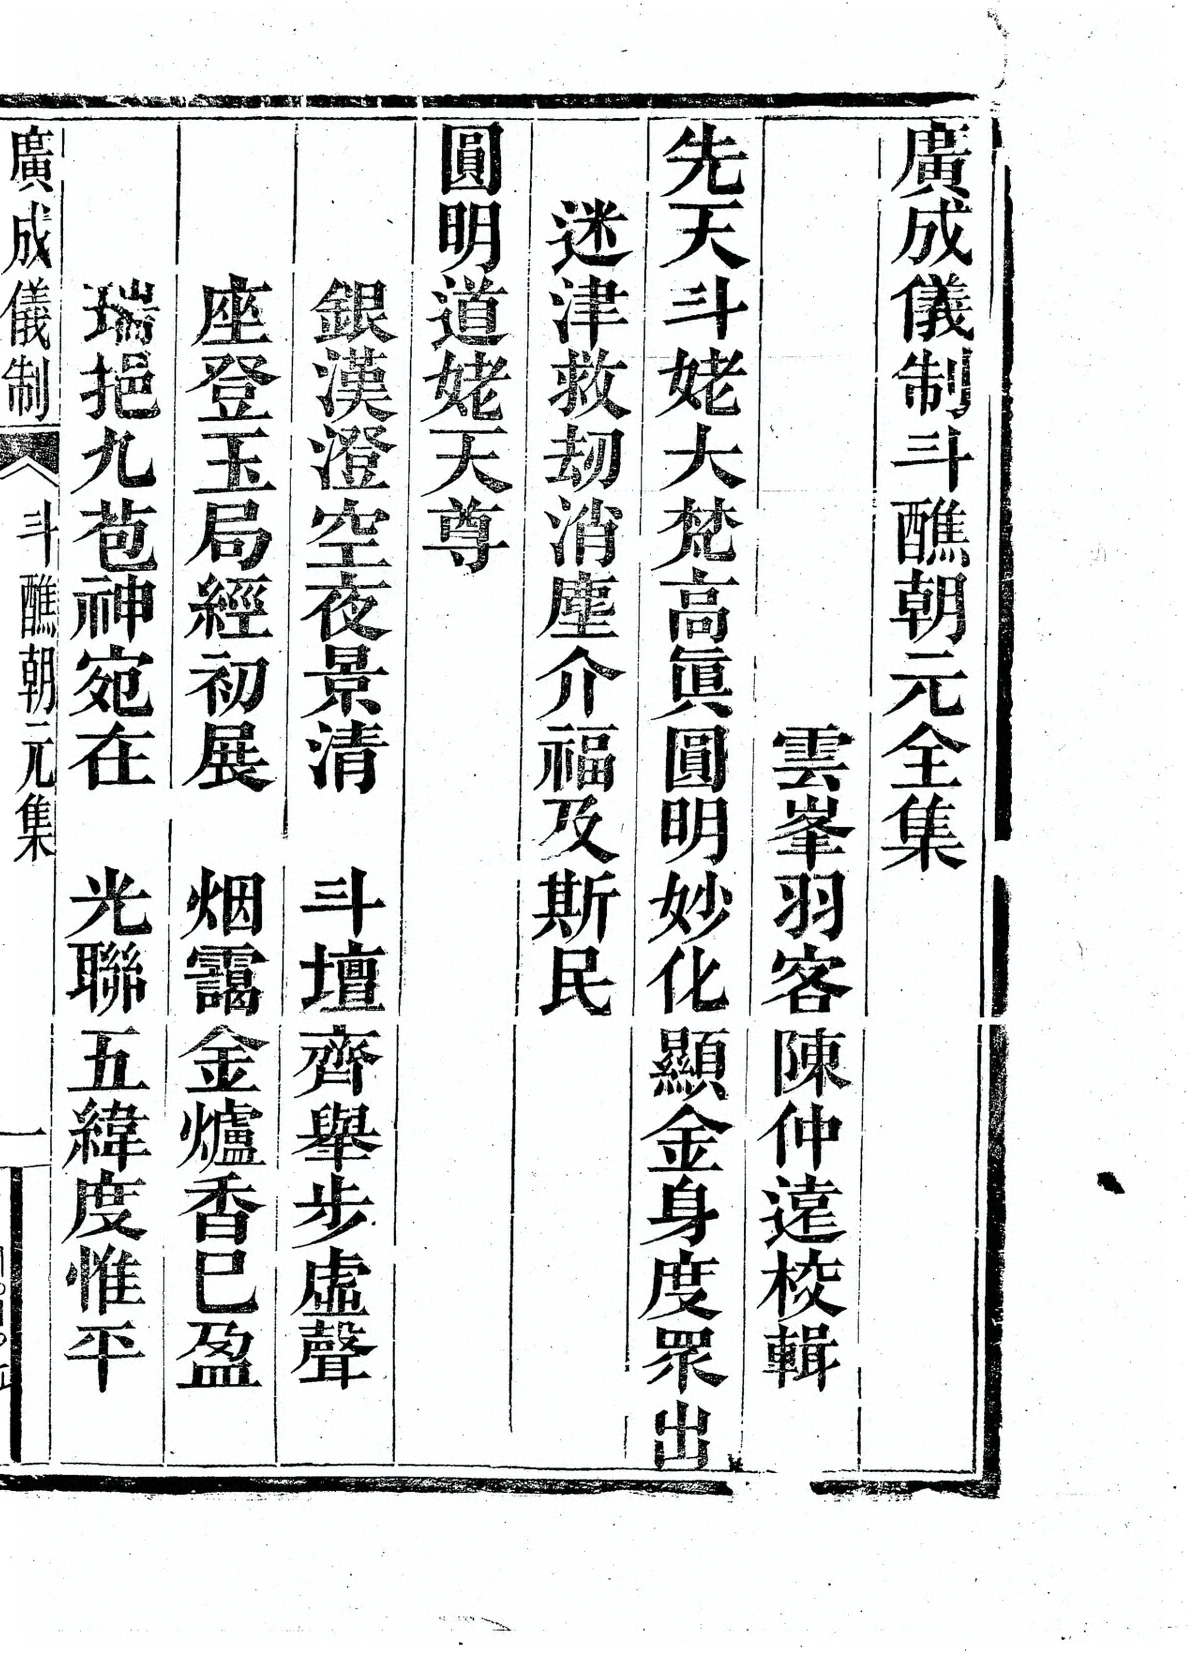 廣成儀制斗醮朝元全集
雲峯羽客陳仲遠校輯
先天斗姥大梵高眞圓明妙化顯金身度眾出
迷津救刼消塵介福及斯民
圓明道姥天尊
銀漢澄空夜景清　斗壇齊舉步虛聲
座登玉局經初展　烟靄金爐香已盈
瑞挹九苞神宛在　光聯五緯度惟平
廣成儀制　斗醮朝元集　一